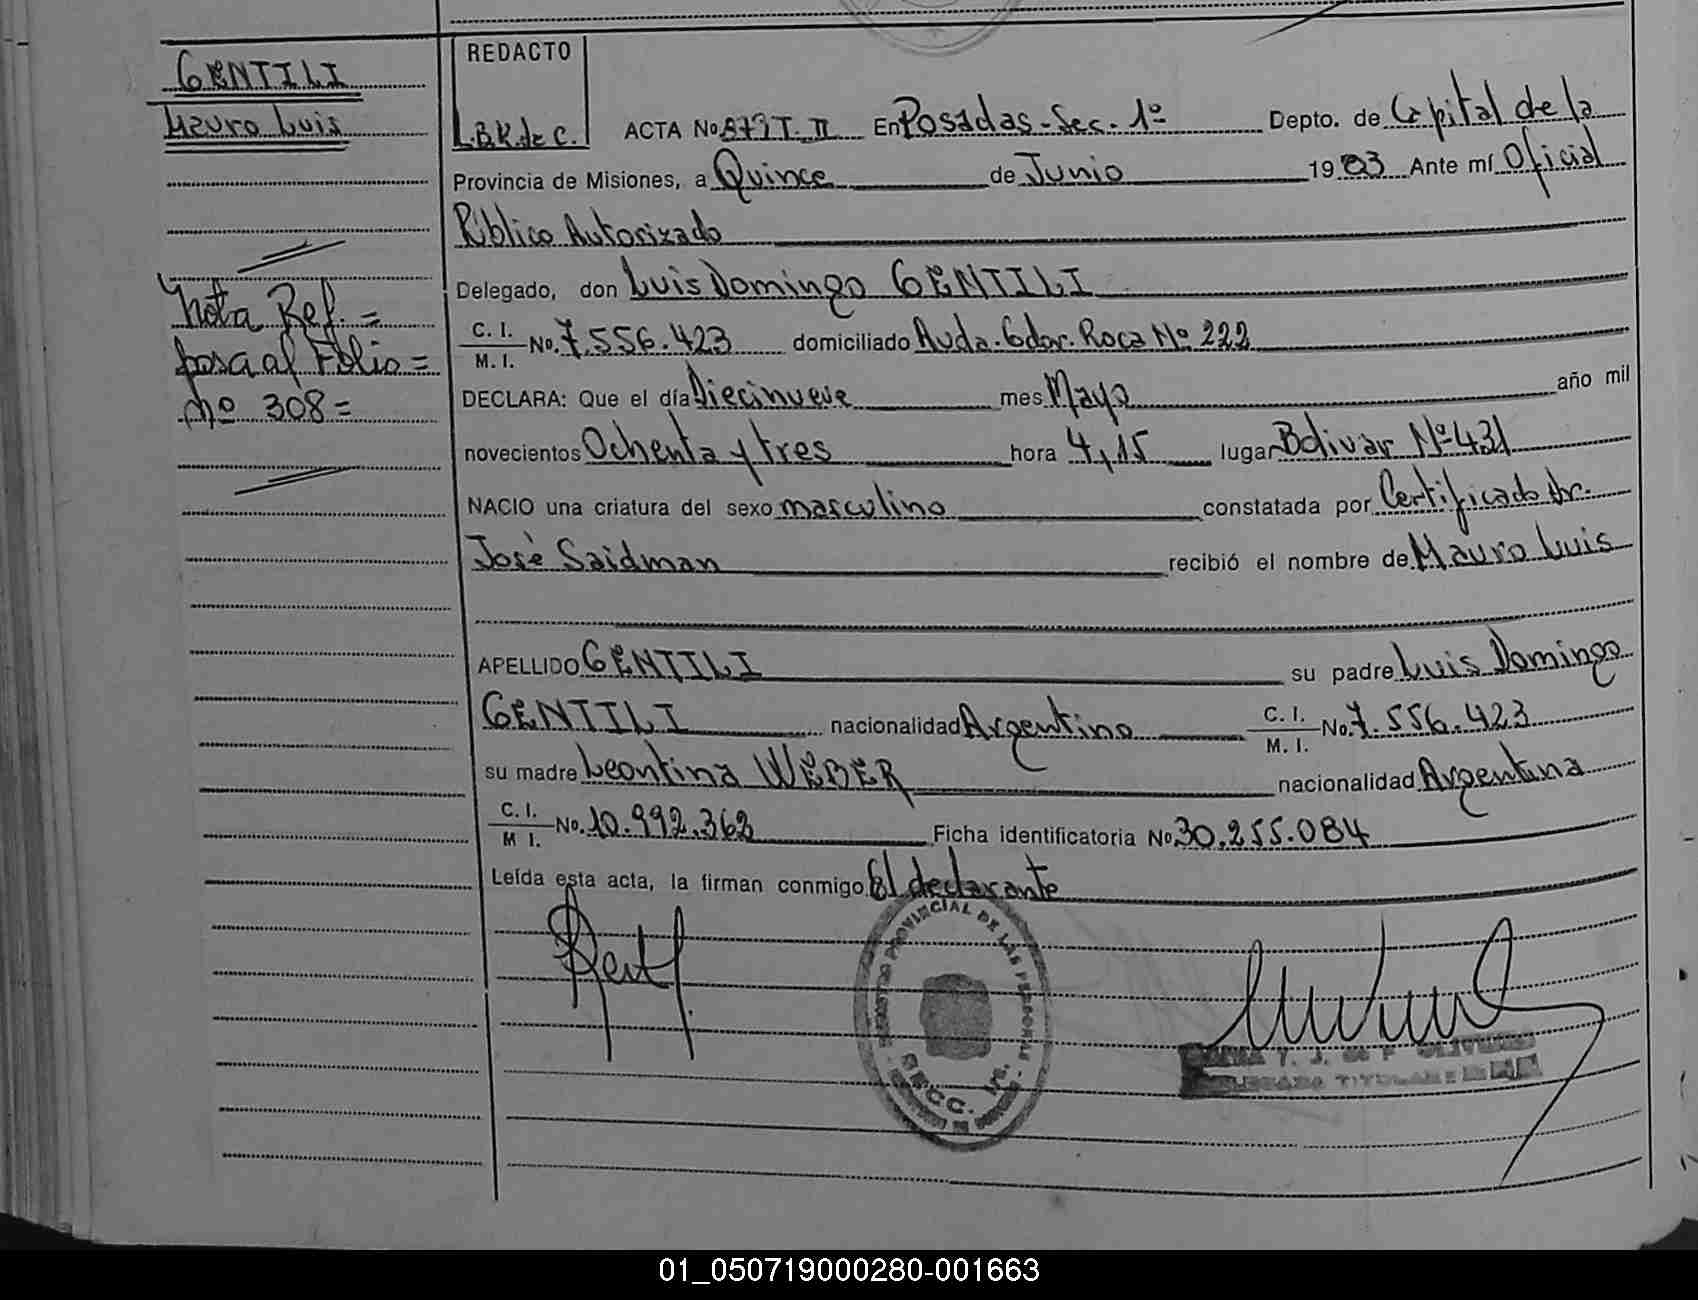 GENTILI
Mauro Luis
Nota Ref. =
pasa al Folio =
nº 308 =
REDACTO
L.B.K. de C.
ACTA No 879 T. II En Posadas - Sec. 1º Depto. de Capital de la
Provincia de Misiones, a Quince de Junio 1983 Ante mí Oficial
Público Autorizado
Delegado, don Luis Domingo GENTILI
C. I.
M. I. No. 7.556.423 domiciliado Avda. Gdor. Roca Nº 222
DECLARA: Que el día Diecinueve mes Mayo año mil
novecientos Ochenta y tres hora 4,15 lugar Bolivar Nº 431
NACIO una criatura del sexo masculino constatada por Certificado Dr.
José Saidman recibió el nombre de Mauro Luis
APELLIDO GENTILI su padre Luis Domingo
GENTILI nacionalidad Argentino C. I.
M. I. No. 7.556.423
su madre Leontina WEBER nacionalidad Argentina
C. I.
M I. No. 10.992.362 Ficha identificatoria No 30.255.084
Leída esta acta, la firman conmigo El declarante
REGISTRO PROVINCIAL DE LAS PERSONAS
SECC. 1ª.
T. J. de P. OLIVERO
TITULAR
01_050719000280-001663